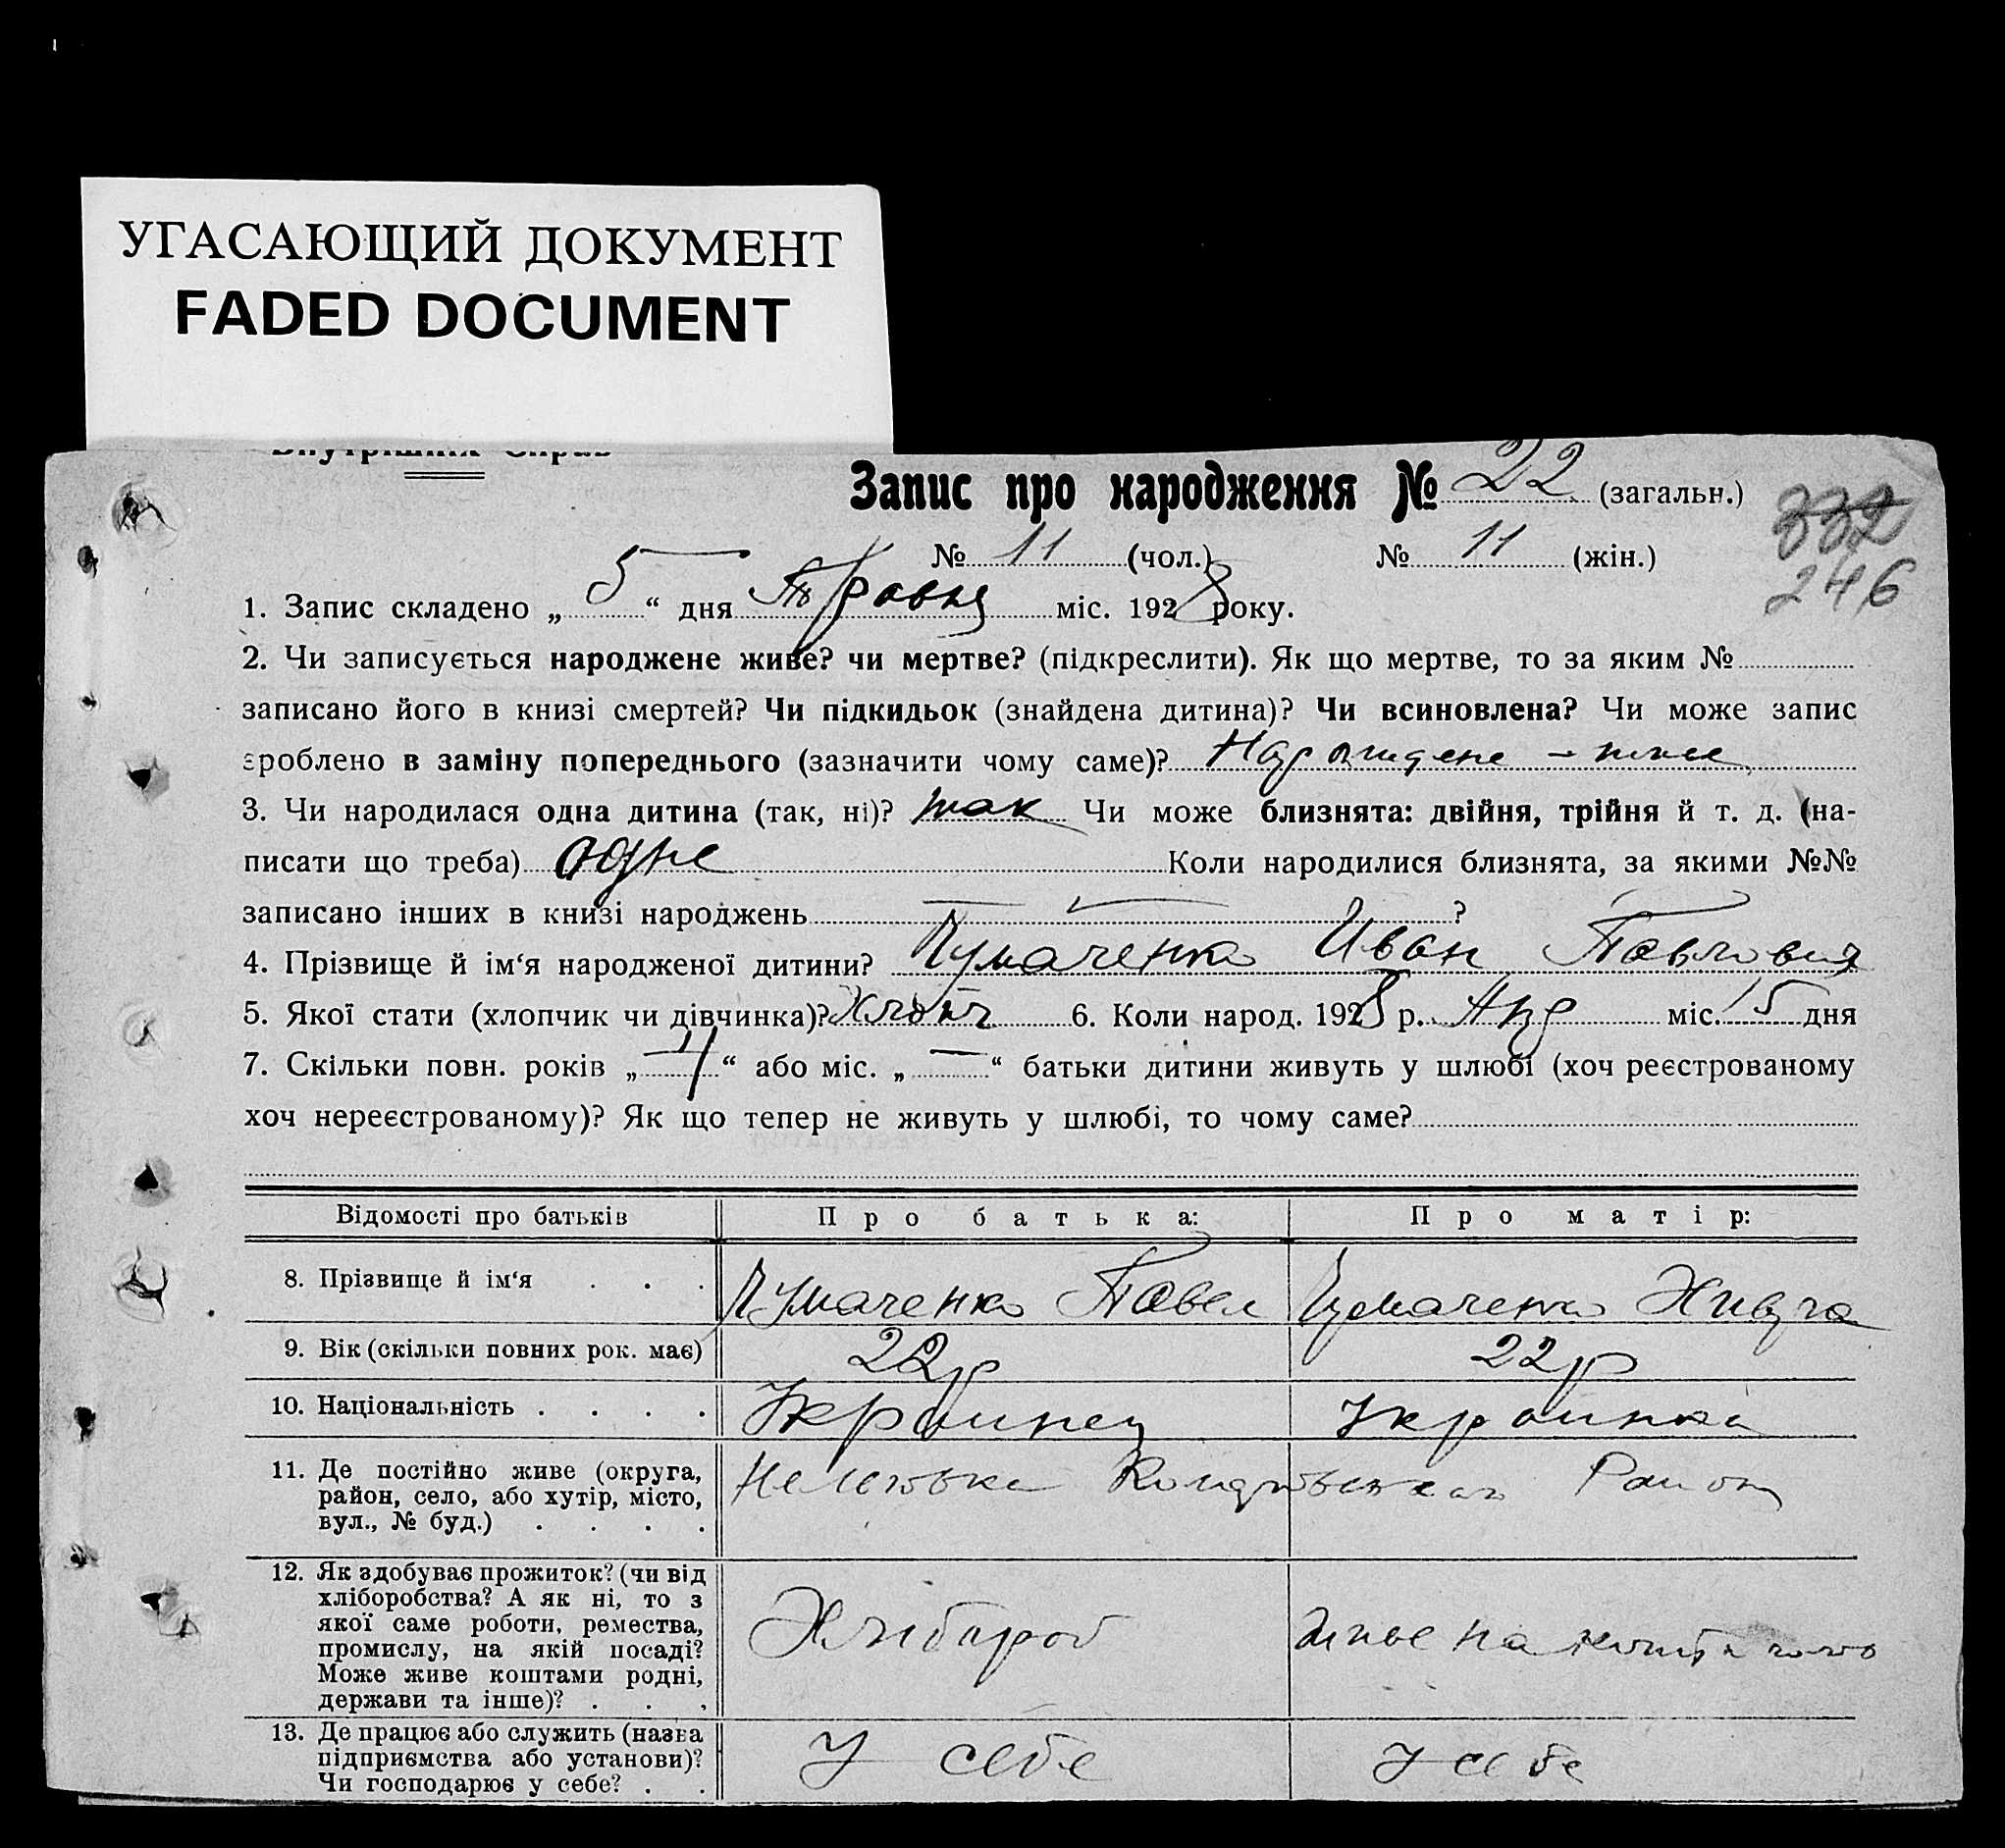 УГАСАЮЩИЙ ДОКУМЕНТ
FADED DOCUMENT
Внутрішніх Справ
Запис про народження № 22 (загальн.)
332
№ 11 (чол.) № 11 (жін.)
246
1. Запис складено „ 5 “ дня Травня міс. 1928 року.
2. Чи записується народжене живе? чи мертве? (підкреслити). Як що мертве, то за яким №
записано його в книзі смертей? Чи підкидьок (знайдена дитина)? Чи всиновлена? Чи може запис
зроблено в заміну попереднього (зазначити чому саме)? —
3. Чи народилася одна дитина (так, ні)? так Чи може близнята: двійня, трійня й т. д. (на-
писати що треба) одне Коли народилися близнята, за якими №№
записано інших в книзі народжень — — ?
4. Прізвище й ім‘я народженої дитини? Чумаченко Иван Павлович
5. Якої стати (хлопчик чи дівчинка)? Хлопч 6. Коли народ. 1928 р. Апр міс. 15 дня
7. Скільки повн. років „ “ або міс. „ — “ батьки дитини живуть у шлюбі (хоч реєстрованому
хоч нереєстрованому)? Як що тепер не живуть у шлюбі, то чому саме?
Відомості про батьків Про батька: Про матір:
8. Прізвище й ім‘я . . . Чумаченко Павел Чумаченко
9. Вік (скільки повних рок. має) 22р 22р
10. Національність . . . . Украинец Украинка
11. Де постійно живе (округа,
район, село, або хутір, місто,
вул., № буд.) . . . . Район
12. Як здобуває прожиток? (чи від
хліборобства? А як ні, то з
якої саме роботи, ремества,
промислу, на якій посаді?
Може живе коштами родні,
держави та інше)? . . . Хлибороб на
13. Де працює або служить (назва
підприємства або установи)?
Чи господарює у себе? . . У себе у себе